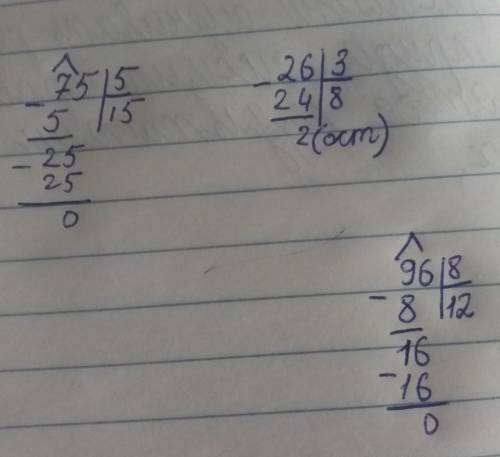 - 75 | 5
5 | 15
- 25
25
0
- 26 | 3
24 | 8
2 (ост)
- 96 | 8
8 | 12
16
- 16
0